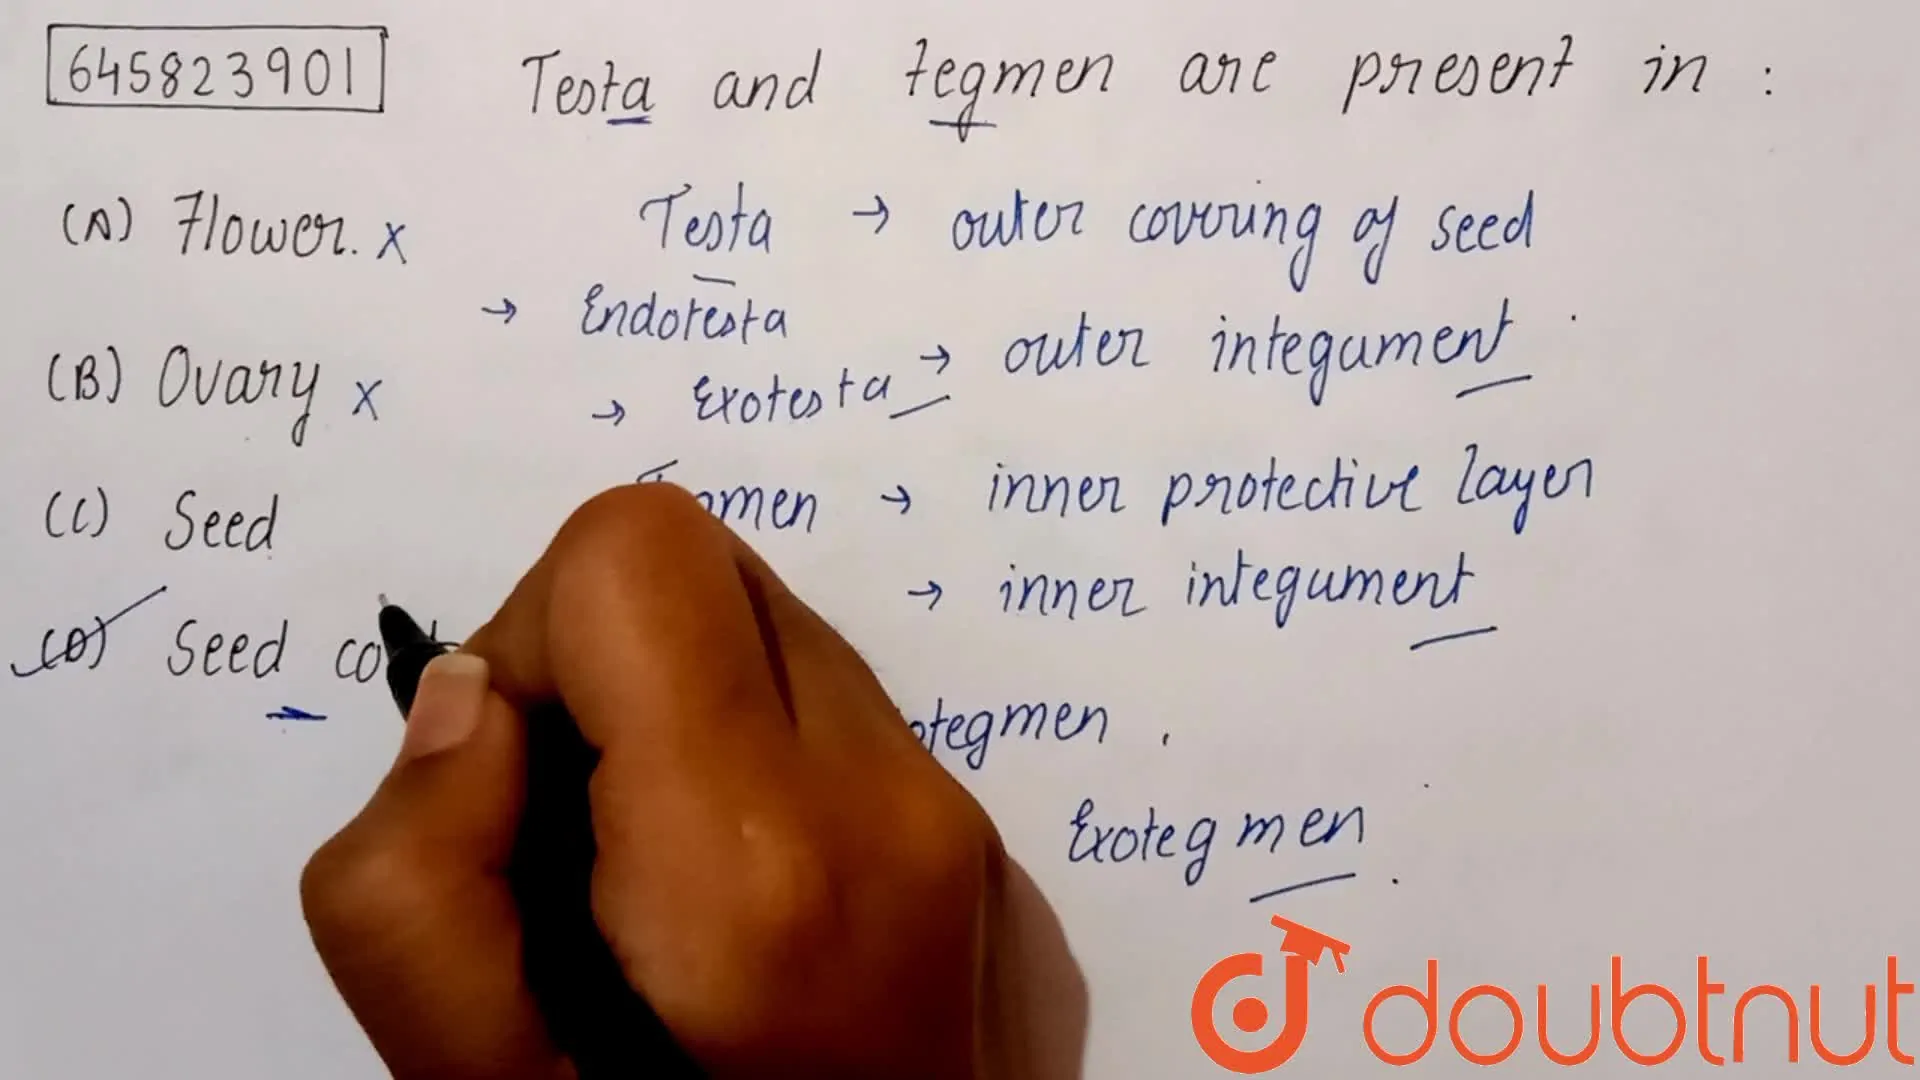 645823901 Testa and tegmen are present in :
(A) Flower. x
Testa → outer covering of seed
→ Endotesta
→ outer integument
(B) Ovary x
→ Exotesta
→ inner protective layer
(C) Seed
→ inner integument
(D) Seed
Exotegmen
doubtnut